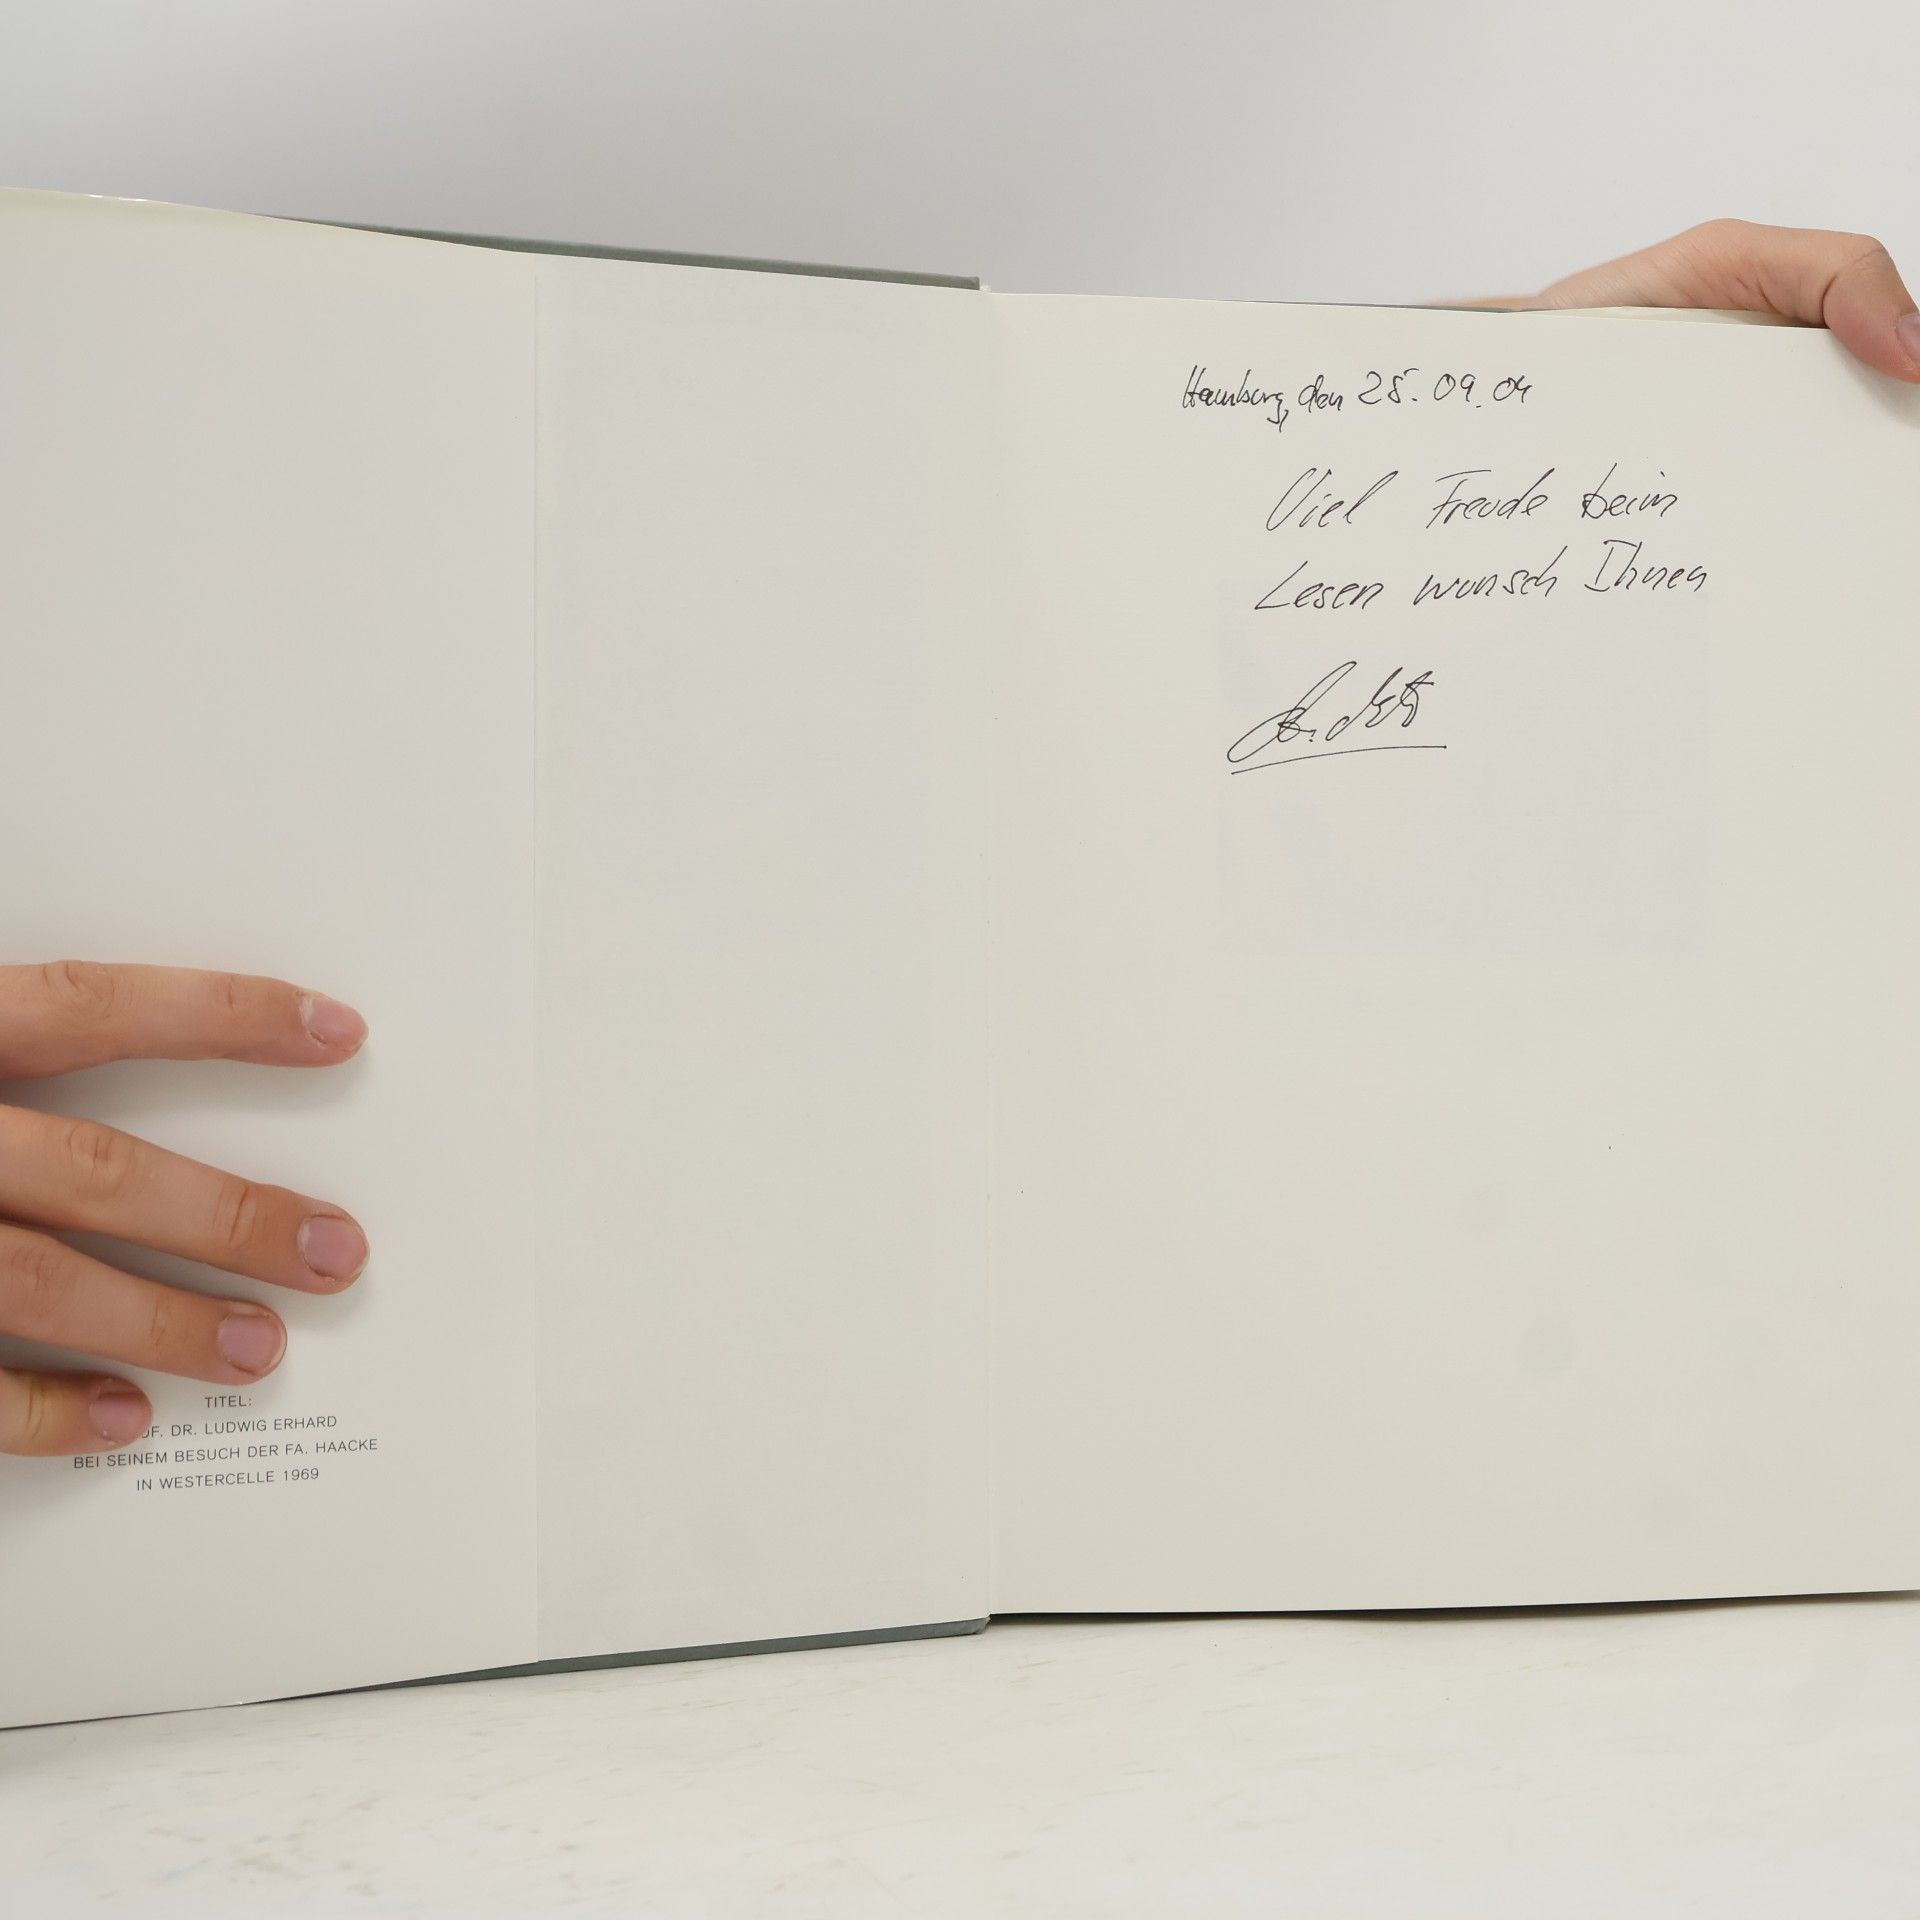 TITEL:
OF. DR. LUDWIG ERHARD
BEI SEINEM BESUCH DER FA. HAACKE
IN WESTERCELLE 1969
Hamburg, den 28. 09. 04
Viel Freude beim
Lesen wünsch Ihnen